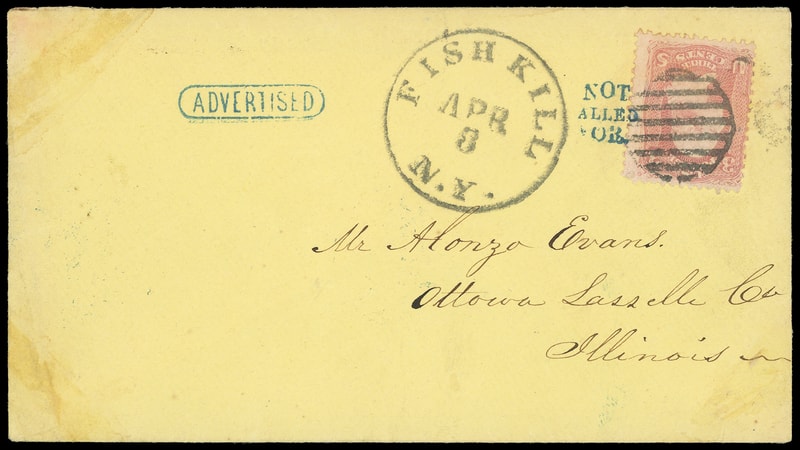 ADVERTISED
FISHKILL
APR
8
N.Y.
NOT
ALLED
OR.
Mr Alonzo Evans.
Ottowa Laszelle Co
Illinois